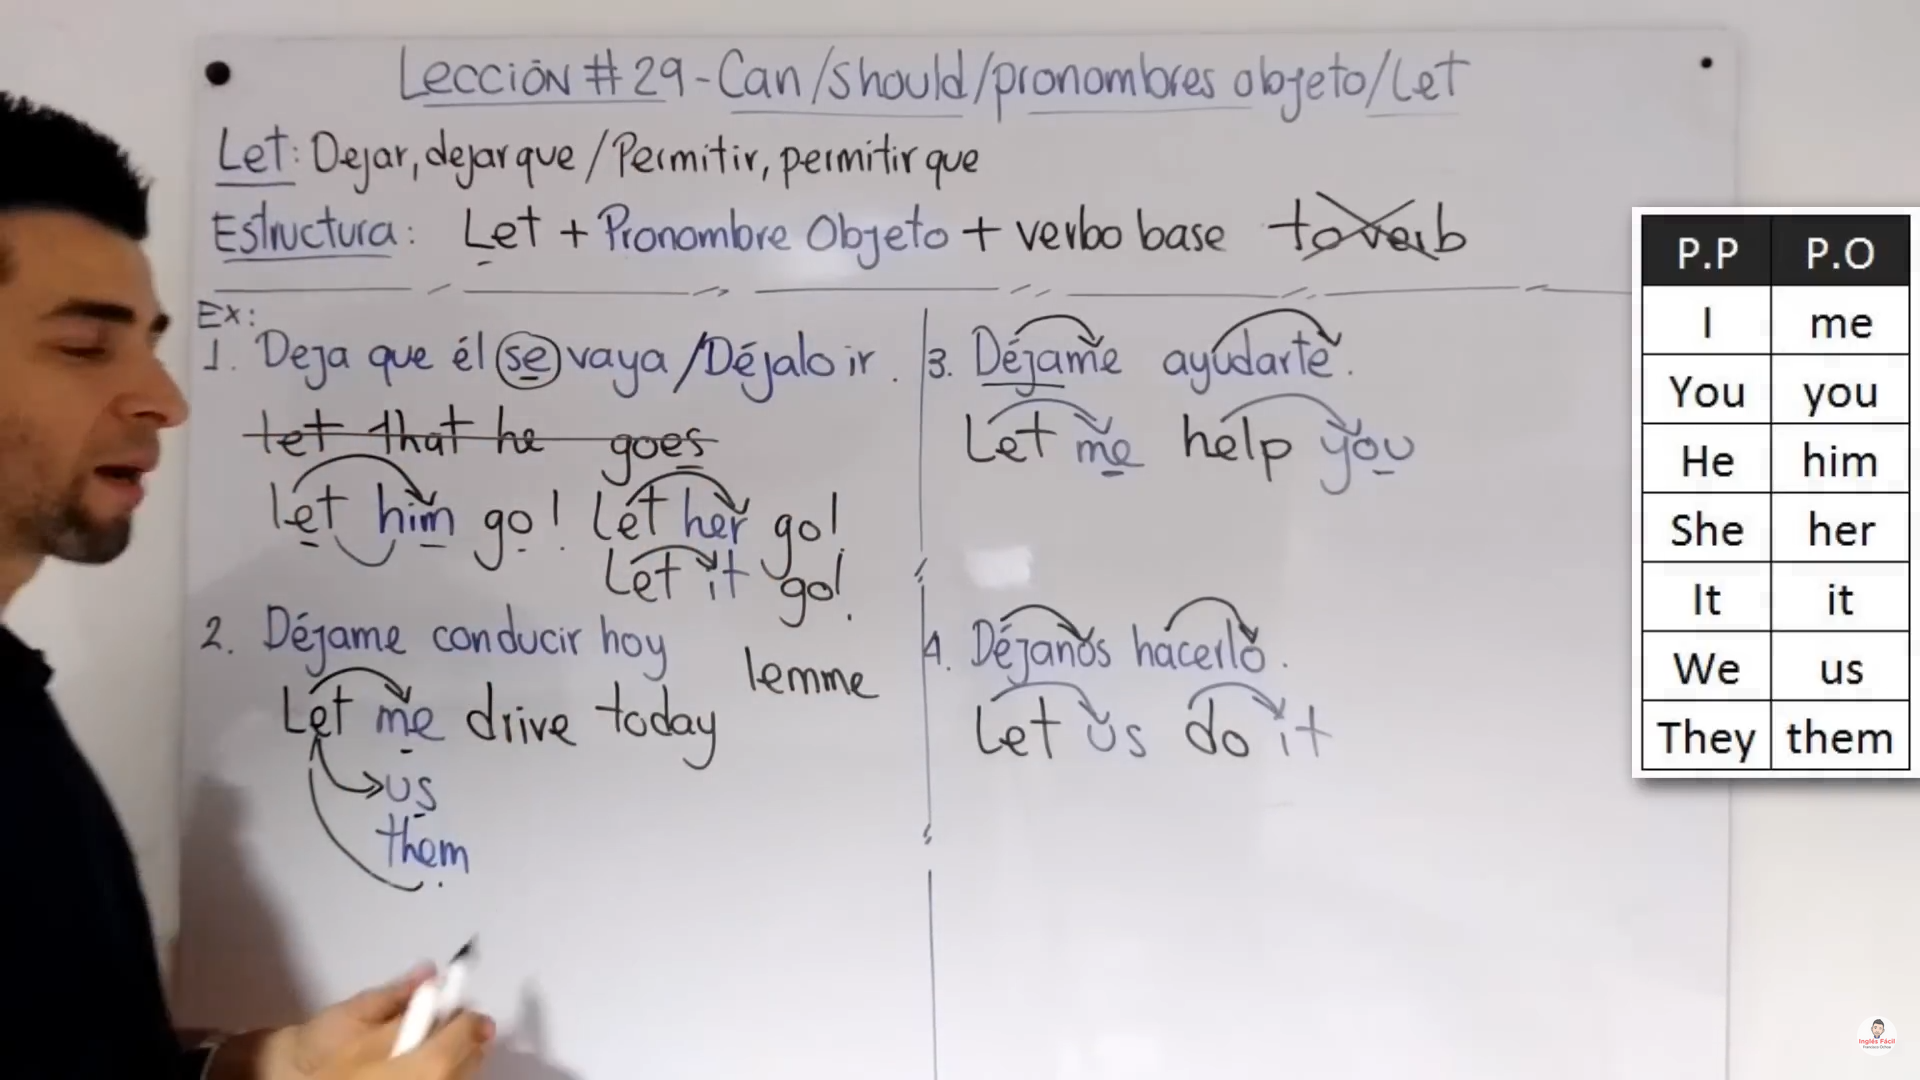 Lección #29-Can/should/pronombres objeto/Let
Let: Dejar, dejar que/Permitir, permitir que
Estructura: Let + Pronombre Objeto + verbo base to verb
Ex:
1. Deja que él se vaya/Déjalo ir.
let that he goes
let him go! Let her go!
Let it go!
2. Déjame conducir hoy
lemme
Let me drive today
us
them
3. Déjame ayudarte.
Let me help you
4. Déjanos hacerlo.
Let us do it
P.P P.O
I me
You you
He him
She her
It it
We us
They them
Inglés Fácil